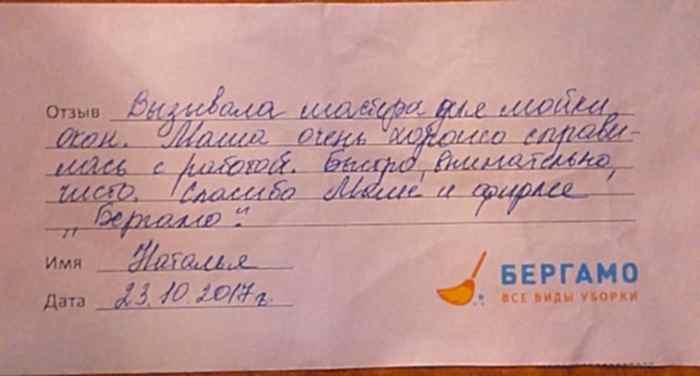 Отзыв Вызывала мастера для мойки
окон. Маша очень хорошо справи-
лась с работой. Быстро, внимательно,
чисто. Спасибо Маше и фирме
„Бергамо".
Имя Наталья
Дата 23.10.2017г.
БЕРГАМО
ВСЕ ВИДЫ УБОРКИ